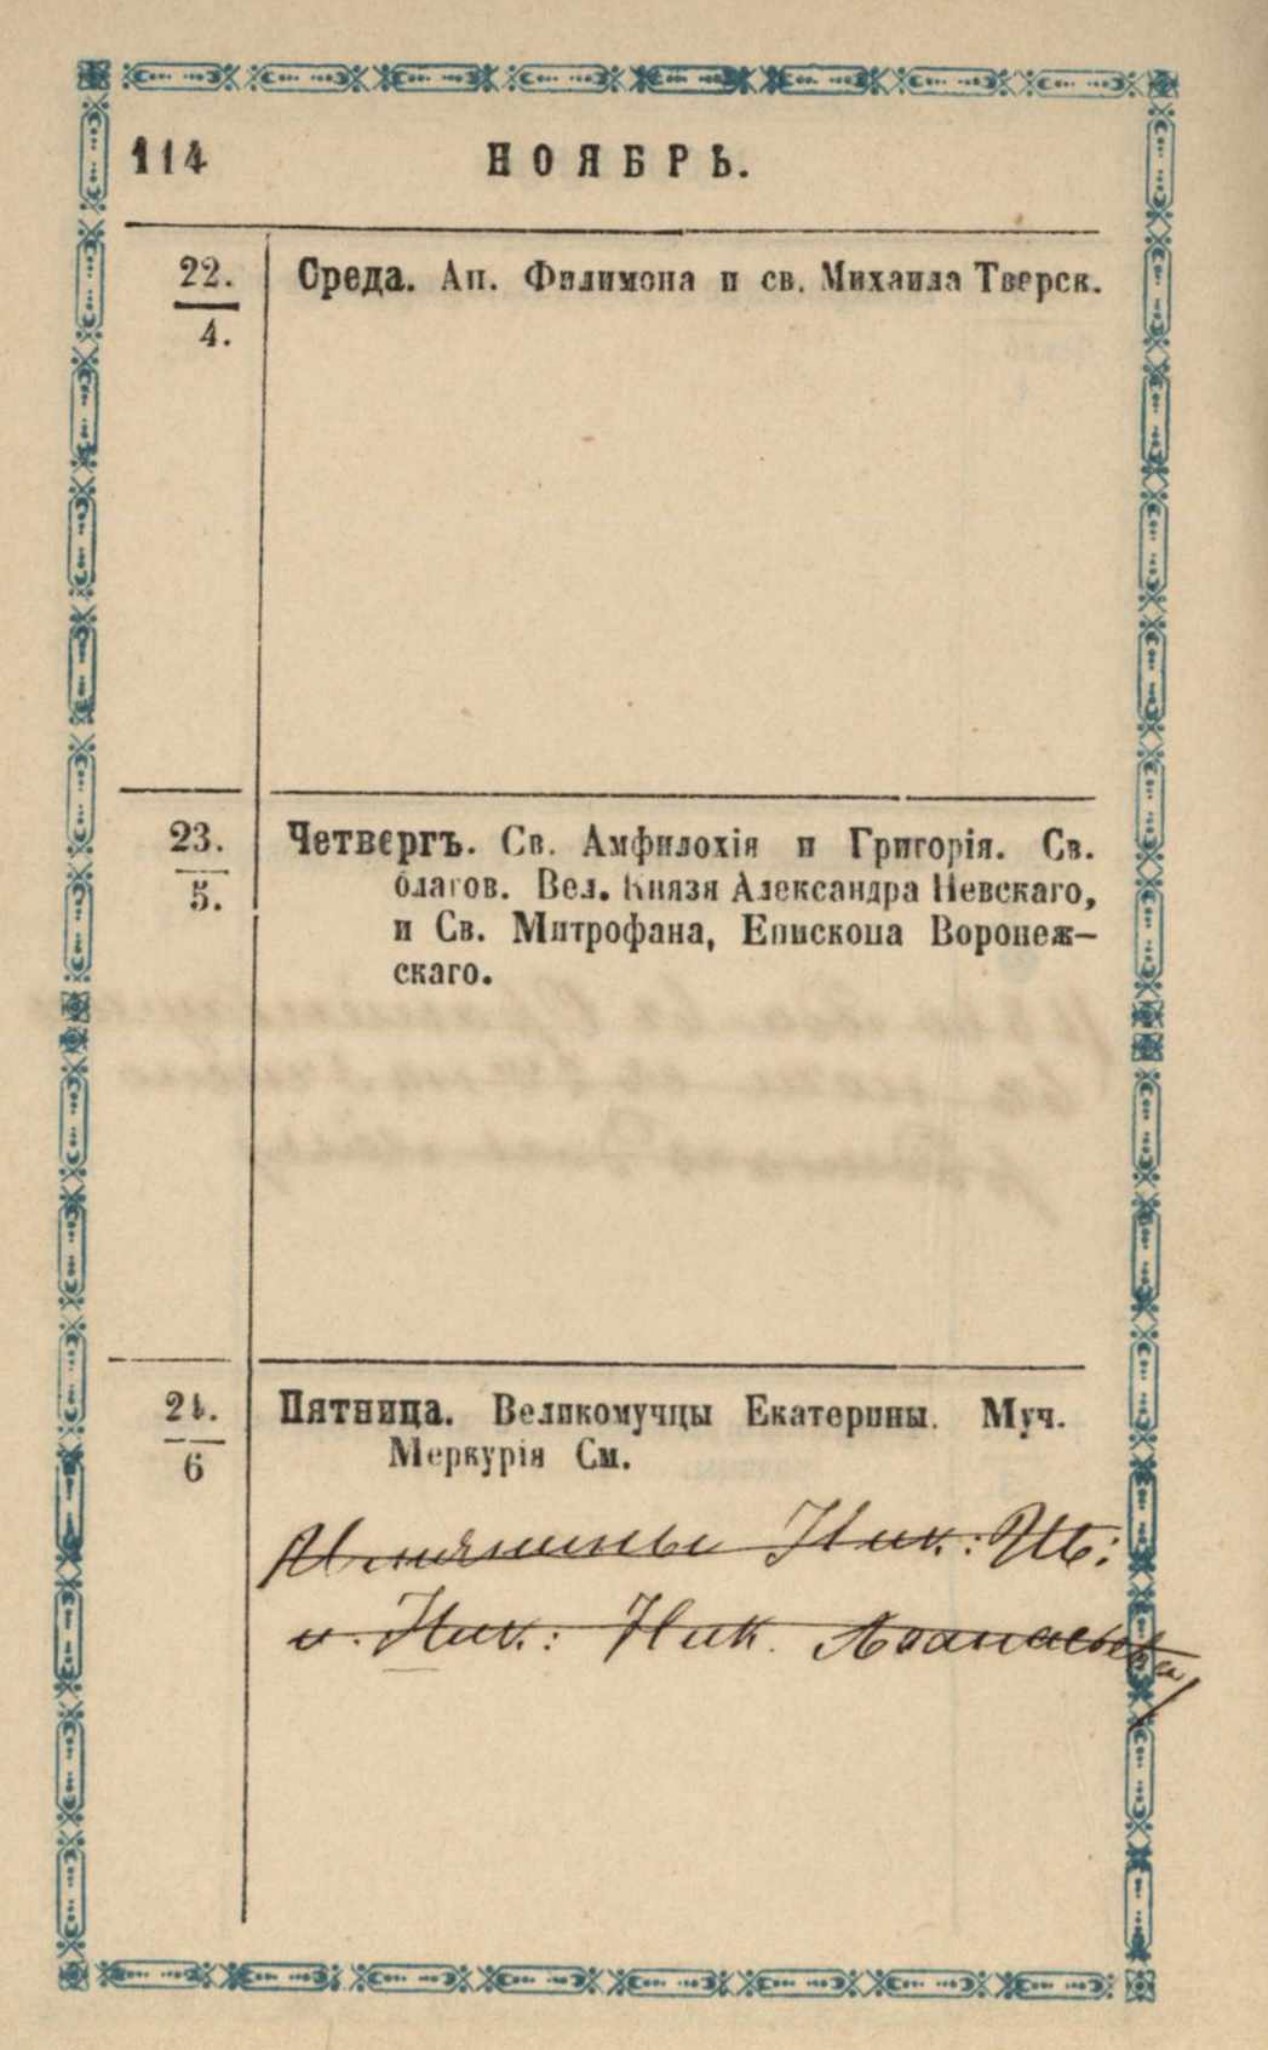 114
НОЯБРЬ.
22.
4.
Среда. Ап. Филимона и св. Михаила Тверск.
23.
5.
Четвергъ. Св. Амфилохія и Григорія. Св.
благов. Вел. Князя Александра Невскаго,
и Св. Митрофана, Епископа Воронеж-
скаго.
24.
6
Пятница. Великомучцы Екатерины. Муч.
Меркурія См.
Имянины Ник.:
и Ник.: Ник. Афанасьева